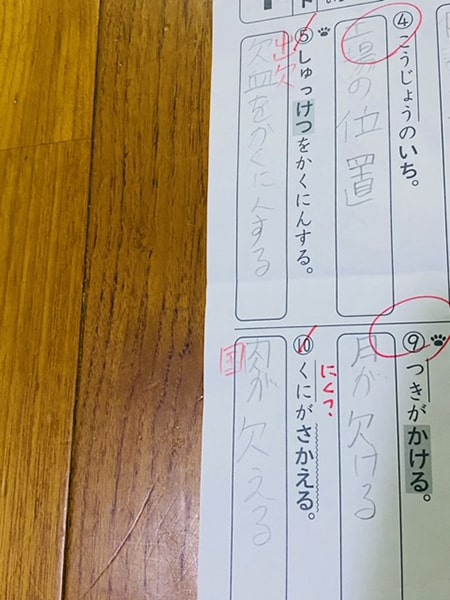 ④こうじょうのいち。
工場の位置
⑤しゅっけつをかくにんする。
出欠
欠血をかくにんする
⑨つきがかける。
月が欠ける
⑩くにがさかえる。
にく?
肉が欠える
国